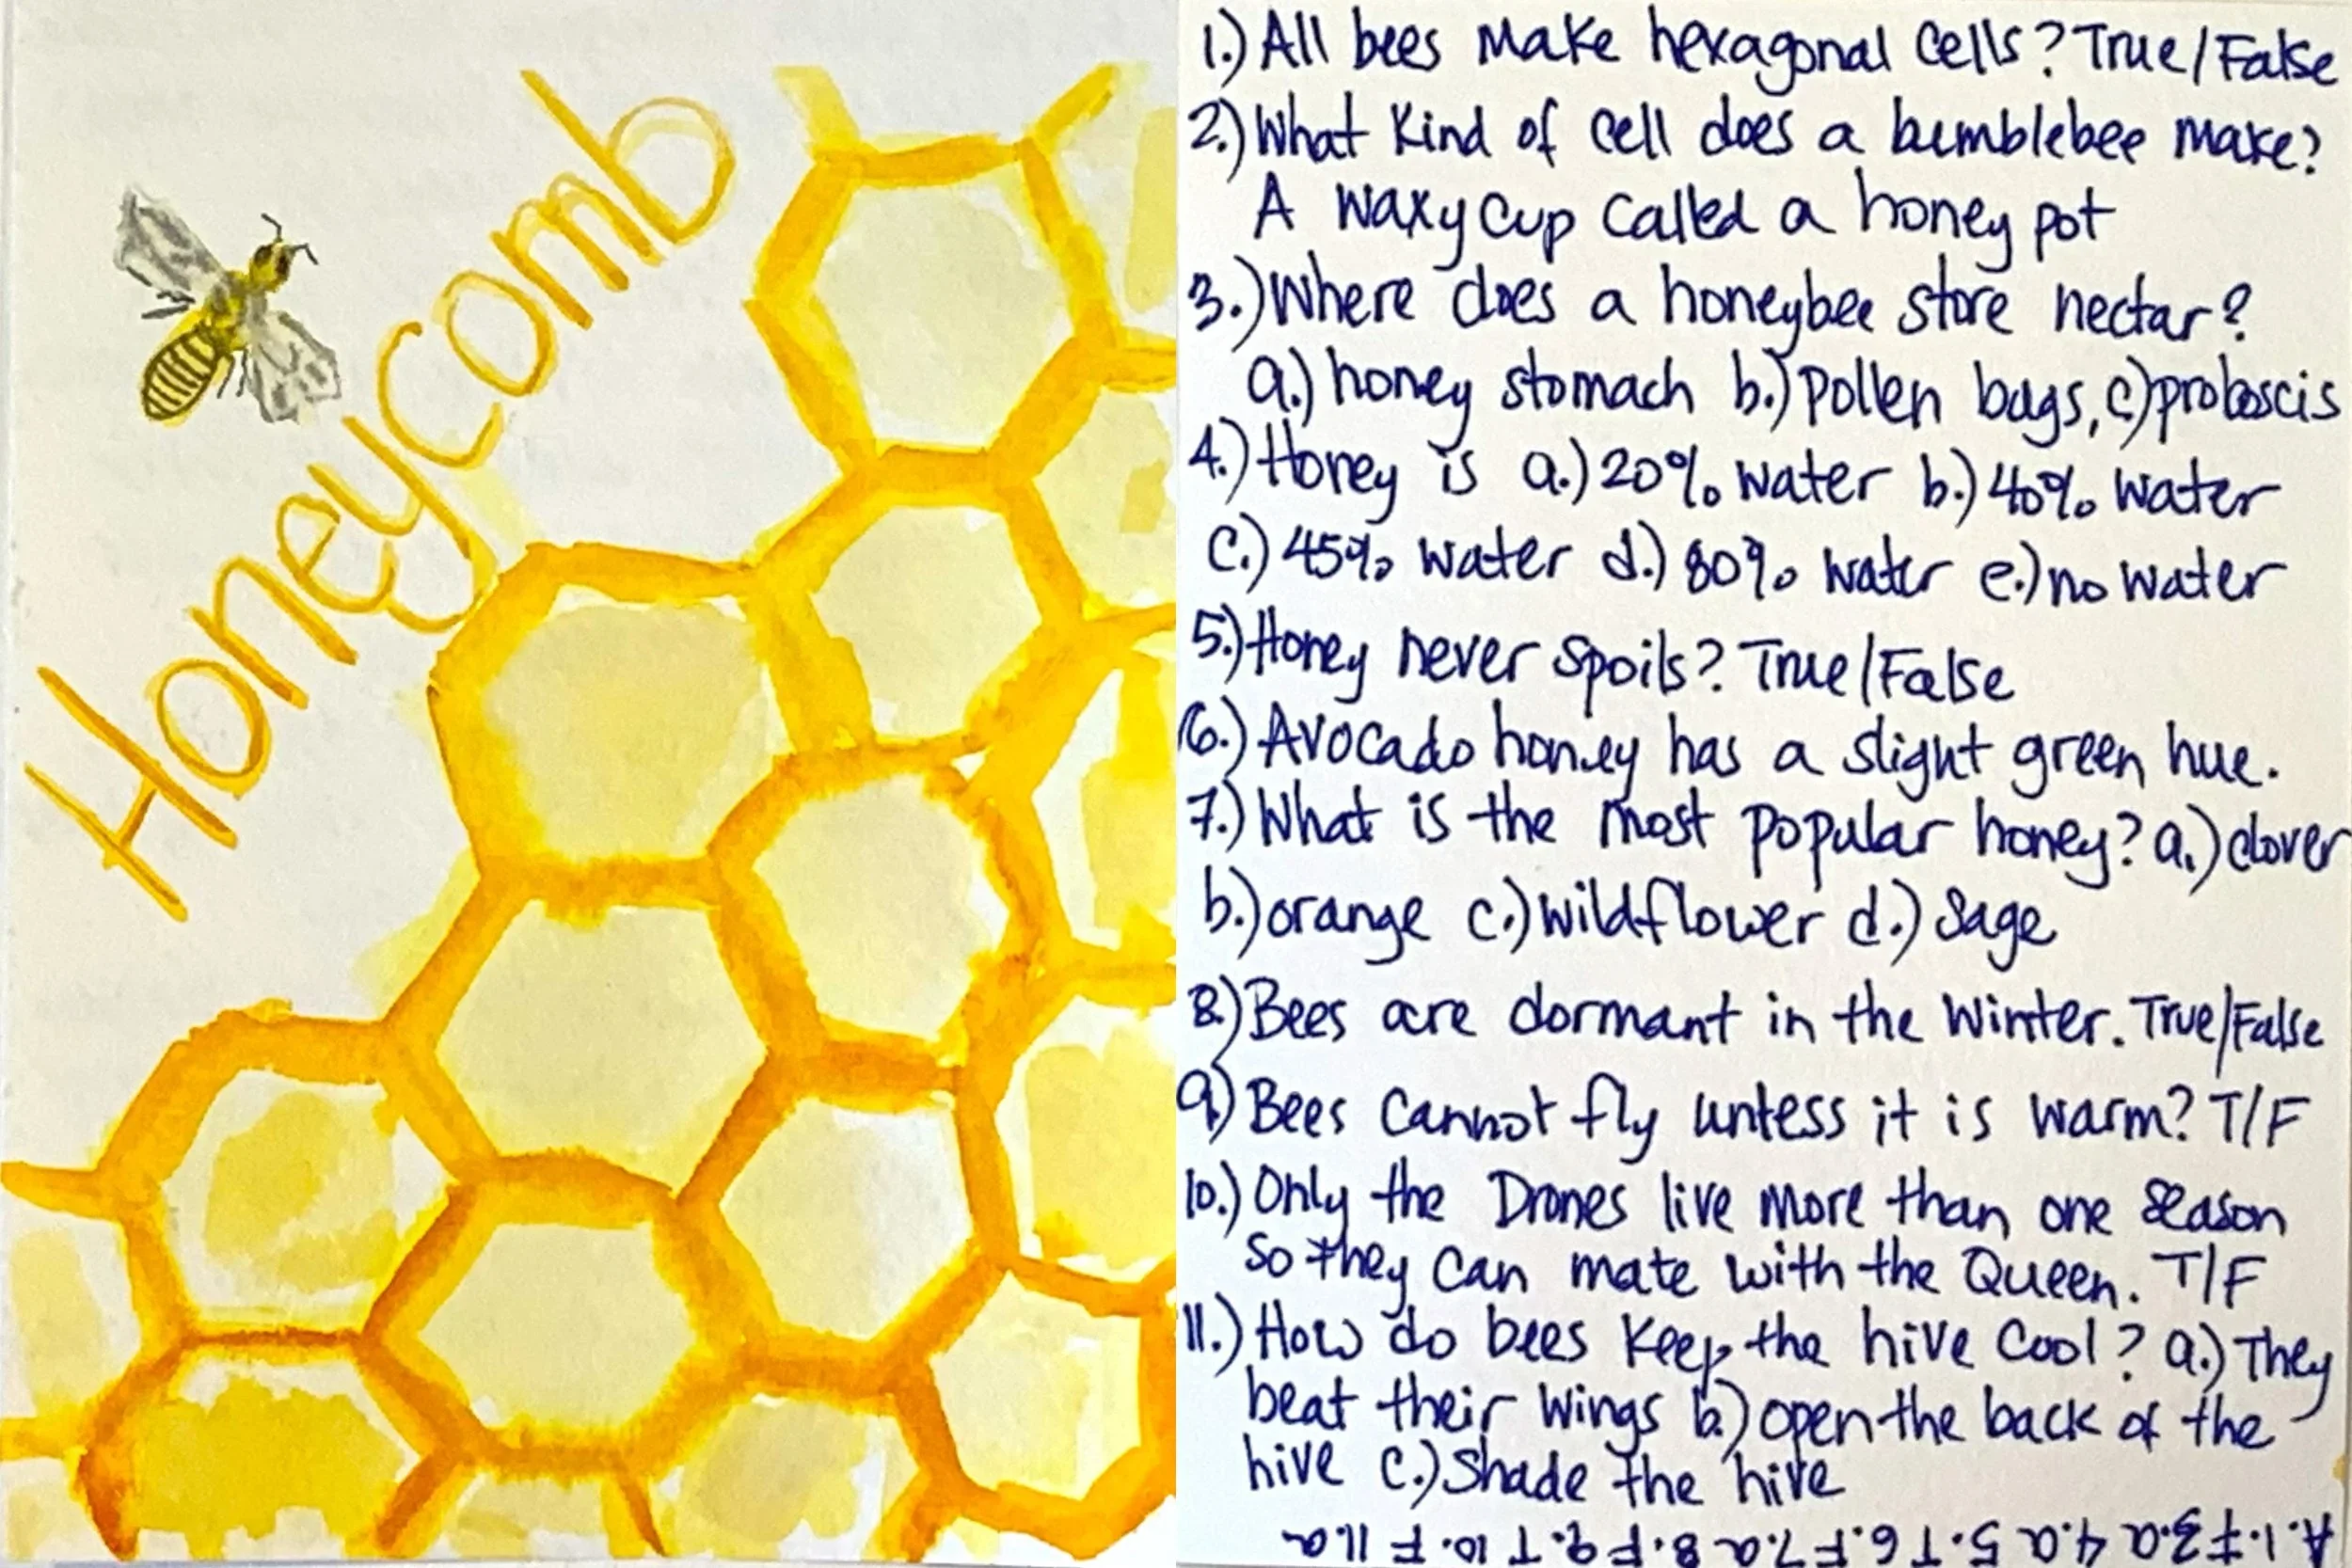 Honeycomb
1.) All bees make hexagonal cells? True/False
2.) What kind of cell does a bumblebee make?
A waxy cup called a honey pot
3.) Where does a honeybee store nectar?
a.) honey stomach b.) pollen bags, c) proboscis
4.) Honey is a.) 20% water b.) 40% water
c.) 45% water d.) 80% water e.) no water
5.) Honey never spoils? True/False
6.) Avocado honey has a slight green hue.
7.) What is the most popular honey? a.) clover
b.) orange c.) wildflower d.) sage
8.) Bees are dormant in the winter. True/False
9.) Bees cannot fly unless it is warm? T/F
10.) Only the Drones live more than one season
so they can mate with the Queen. T/F
11.) How do bees keep the hive cool? a.) They
beat their wings b.) open the back of the
hive c.) Shade the hive
A. 1. F 3. a 4. a 5. T 6. F 7. a 8. F 9. T 10. F 11. a